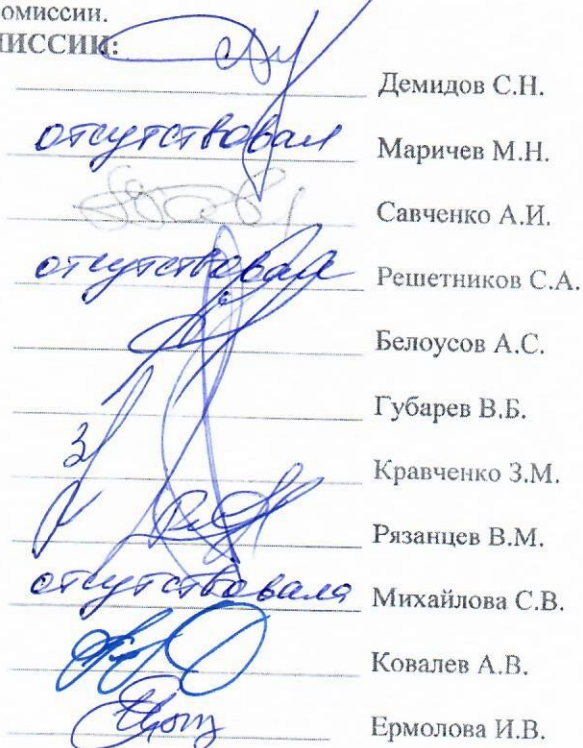 омиссии.
ИССИИ:
Демидов С.Н.
отсутствовал Маричев М.Н.
Савченко А.И.
отсутствовал Решетников С.А.
Белоусов А.С.
Губарев В.Б.
Кравченко З.М.
Рязанцев В.М.
отсутствовала Михайлова С.В.
Ковалев А.В.
Ермолова И.В.